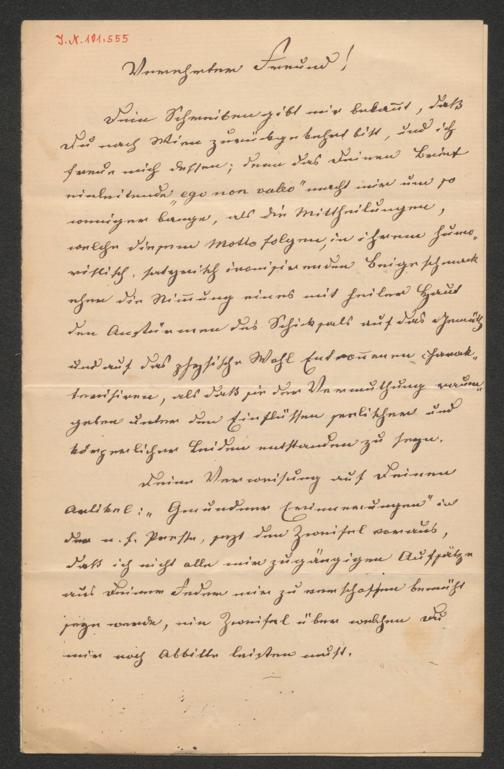 J.N. 191.555
Verehrter Freund!
Dein Schreiben gibt mir bekannt, daß
Du nach Wien zurückgekehrt bist, und ich
freue mich dessen; denn das Deinen Brief
einleitende „ego non valeo" macht mir um so
weniger bange, als die Mittheilungen,
welche diesem Motto folgen, in ihrem humo-
ristisch, satyrisch ironisirenden Beigeschmack
eher die Stimmung eines mit heiler Haut
den Anstürmen des Schicksals auf das Gemüth
und auf das physische Wohl Entronnenen charak-
terisiren, als daß sie der Vermuthung raum
geben unter den Einflüssen seelischer und
körperlicher Leiden entstanden zu seyn.
Deine Verweisung auf Deinen
Artikel: „Gmundner Erinnerungen" in
der n. f. Presse, setzt den Zweifel voraus,
daß ich nicht alle mir zugängigen Aufsätze
aus Deiner Feder mir zu verschaffen bemüht
seyn werde, ein Zweifel über welchen Du
mir noch Abbitte leisten mußt.